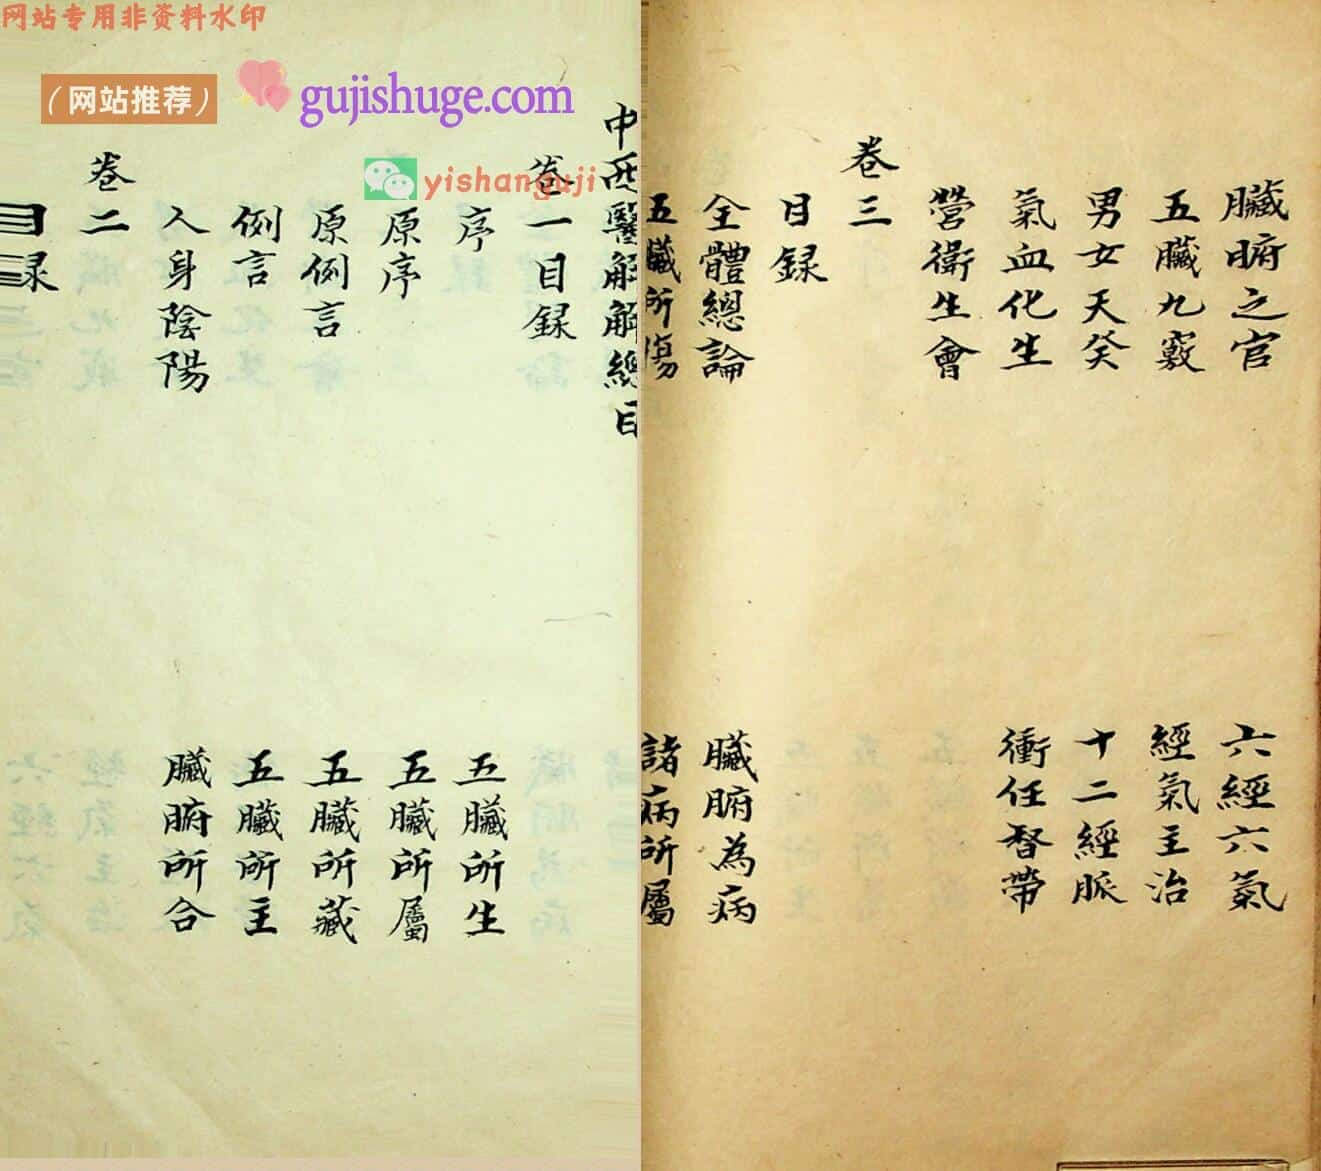 网站专用非资料水印
（网站推荐） gujishuge.com
yishanguji
中西醫解解總目
卷一目録
序 五臟所生
原序 五臟所屬
原例言 五臟所藏
例言 五臟所主
人身陰陽 臟腑所合
卷二
目録
臟腑之官 六經六氣
五臟九竅 經氣主治
男女天癸 十二經脈
氣血化生 衝任督帶
營衛生會
卷三
目録
全體總論 臟腑為病
五臟所傷 諸病所屬